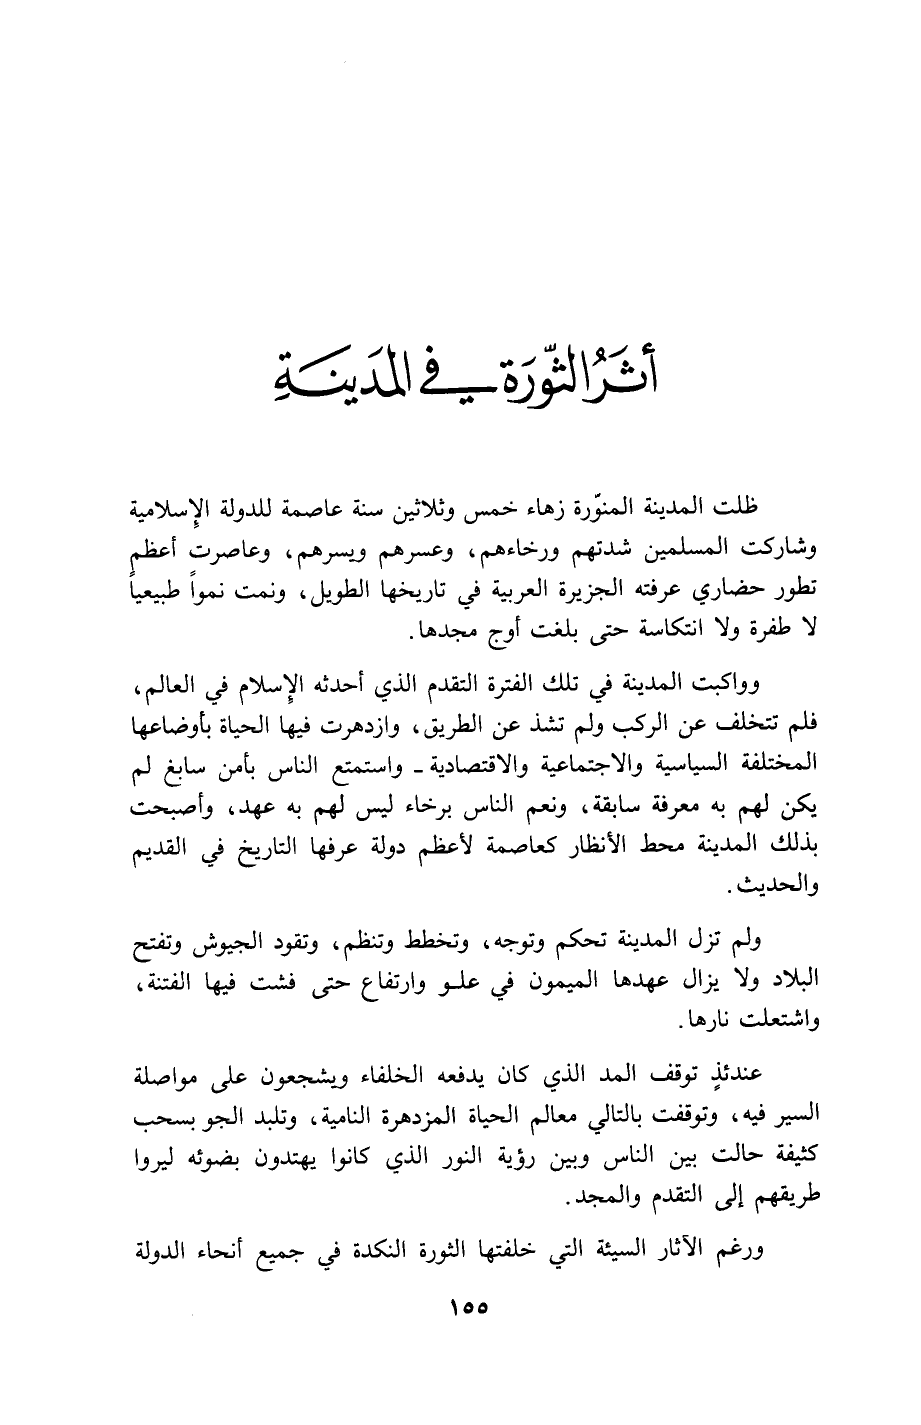 أثَرُ الثّورَة في المَدينَةِ
ظلت المدينة المنوّرة زهاء خمس وثلاثين سنة عاصمة للدولة الإسلامية
وشاركت المسلمين شدتهم ورخاءهم، وعسرهم ويسرهم، وعاصرت أعظم
تطور حضاري عرفته الجزيرة العربية في تاريخها الطويل، ونمت نمواً طبيعياً
لا طفرة ولا انتكاسة حتى بلغت أوج مجدها.
وواكبت المدينة في تلك الفترة التقدم الذي أحدثه الإسلام في العالم،
فلم تتخلف عن الركب ولم تشذ عن الطريق، وازدهرت فيها الحياة بأوضاعها
المختلفة السياسية والاجتماعية والاقتصادية - واستمتع الناس بأمن سابغ لم
يكن لهم به معرفة سابقة، ونعم الناس برخاء ليس لهم به عهد، وأصبحت
بذلك المدينة محط الأنظار كعاصمة لأعظم دولة عرفها التاريخ في القديم
والحديث.
ولم تزل المدينة تحكم وتوجه، وتخطط وتنظم، وتقود الجيوش وتفتح
البلاد ولا يزال عهدها الميمون في علو وارتفاع حتى فشت فيها الفتنة،
واشتعلت نارها.
عندئذٍ توقف المد الذي كان يدفعه الخلفاء ويشجعون على مواصلة
السير فيه، وتوقفت بالتالي معالم الحياة المزدهرة النامية، وتلبد الجو بسحب
كثيفة حالت بين الناس وبين رؤية النور الذي كانوا يهتدون بضوئه ليروا
طريقهم إلى التقدم والمجد.
ورغم الآثار السيئة التي خلفتها الثورة النكدة في جميع أنحاء الدولة
١٥٥